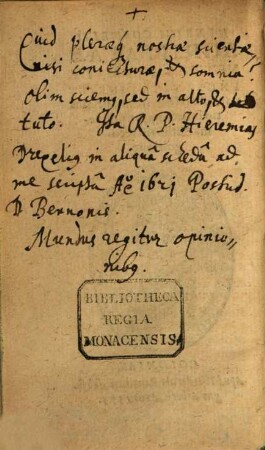 +
Quid pleraeq nostrae scientiae,
nisi coniecturae, et somnia?
olim sciemus, sed in alto et
tuto. Ita R. P. Hieremias
Drexelius in aliquâ schedâ ad
me scriptâ Aō 1621 Postrid.
D Bennonis.
Mundus regitur opinio,,
nibus.
BIBLIOTHECA
REGIA
MONACENSIS